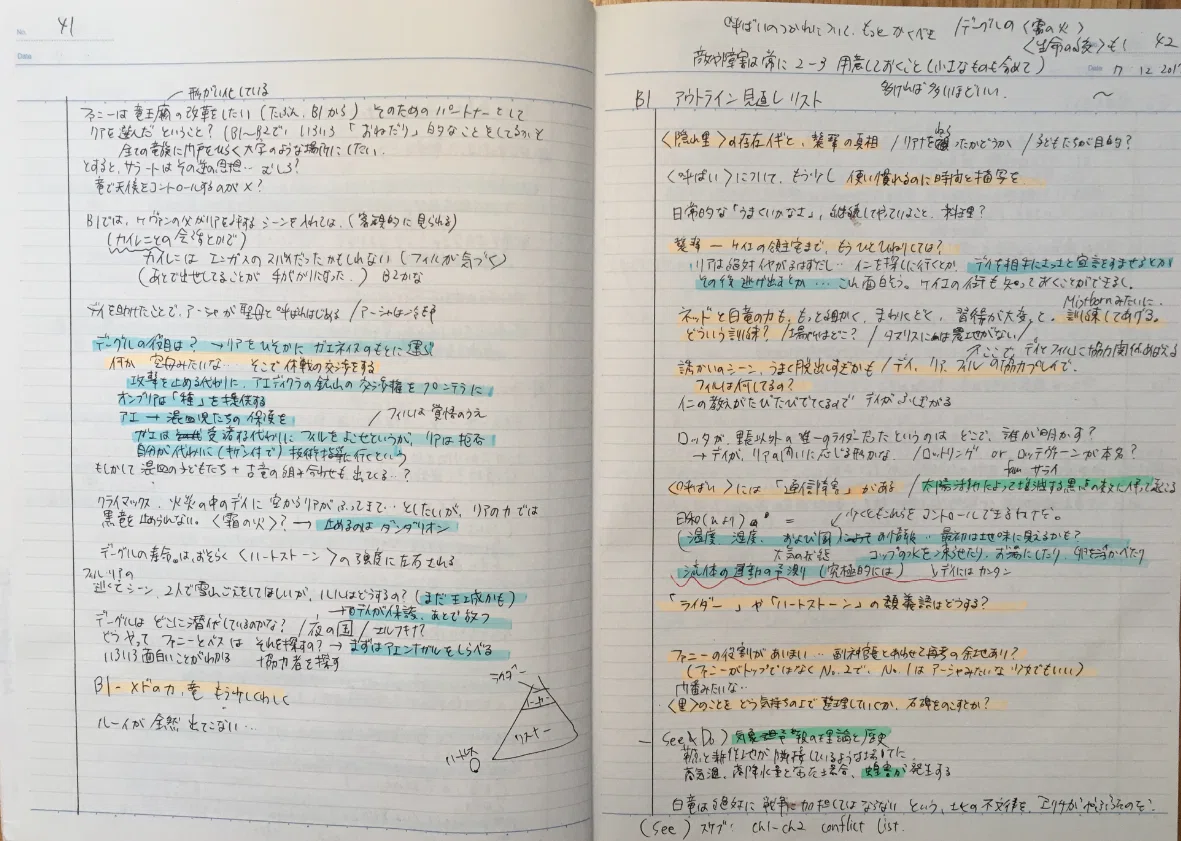 No. 41
Date
形がい化している
ファニーは竜王廟の改革をしたい(たぶん、B1から) そのためのパートナーとして
リアを選んだということ?(B1〜B2で、いろいろ「おねだり」的なことをしてるかと
全ての竜族に門戸をひらく大学のような場所にしたい
とすると、サラートはその逆の思想… むしろ?
竜で天候をコントロールするのが×?
B1では、ケヴァンの父がリアを
シーンを入れては、(客観的に見られる)
(カイレニとの会話とかで)
カイレニは エンガスの スパイだったかもしれない(フィルが気づく)
(あとで出せてることが 手がかりになった) B2かな
デイを助けたことで、アーシャが聖母と呼ばれはじめる /アーシャは
デーグルの役目は? → リアをひそかに ガエネイスのもとに運ぶ
何か 空母みたいな… そこで休戦の交渉をする
攻撃を止める代わりに、アエディクラの鉱山の交渉権をフロンテラに
オンブリアは「種」を提供する
アエ → 混血児たちの保護を /フィルは覚悟のうえ
ガエは 受諾する代わりに フィルをよこせというが、リアは拒否
自分が代わりに(キザシ付で) 技術
に行くという
もしかして 混血の子どもたち + 古竜の組み合わせも出てくる…?
クライマックス、火炎の中のデイに 空からリアがふってきて…としたいが、リアの力では
黒竜を止められない。〈霜の火〉? → 止めるのは ダンダリオン
デーグルの寿命は、おそらく〈ハートストーン〉の強度に左右される
フィル・リアの
逃亡シーン、2人で雪山ごえをしてほしいが、ルルはどうする?(まだ王城かも)
→ デイが保護、あとで放つ
デーグルは どこに潜伏しているのかな? /夜の国/エルフキナ?
どうやって ファニーとハズは それを探すの? → まずはアエンナガルをしらべる
いろいろ面白いことがわかる +協力者を探す
B1 - ×ドの力、竜 もう少しくわしく
ルーイが 全然 出てこない…
ライダー
コーカー
リスナー
ハートレス
〈呼ばい〉のつかれについて、もっとかくべき /デーグルの〈霜の火〉
〈生命の
〉も! 42
敵や障害は常に 2-3 用意しておくこと(小さなものも含めて)
多ければ多いほどいい。
Date 7 12 201
B1 アウトライン見直しリスト
〈隠れ里〉の存在
と、襲撃の真相 /リアナを
ったかどうか /子どもたちが目的?
〈呼ばい〉について、もう少し 使い慣れるのに時間と描写を
日常的な「うまくいかなさ」、継続してやっていること、料理?
襲撃 ― ケイエの領主宅まで、もうひとひねりしては?
リアは絶対イヤがるはずだし… イニを探しに行くとか、デイを相手にえっと宣言をすませるとか
その後 逃げ出すとか… これ面白そう。ケイエの街も知っておくことができるし。
Mistborn みたいに、
ネッドと白竜の力も、もっと細かく、まわりにとと、習得が大変、と。訓練してあげる。
どういう訓練? /場所はどこ? /タマリスには農地がない/
ここで、デイとフィルに協力関係あたえる
誘かいのシーン、うまく脱出しすぎかも/デイ、リア、フィルの協力プレイで。
フィルは何してるの?
イニの教えがたびたびでてくるので デイがふしぎがる
ロッタが、里長以外の唯一のライダーだった というのは どこで、誰が明かす?
→ デイが、リアの問いに応じる形かな、 /ロットリング or ロッテヴァーンが本名?
サライ
〈呼ばい〉には 「通信障害」がある /太陽活動によって増減する黒点の数に伴って起こる
少なくともこれらを コントロールできるわけだ。
(温度、湿度、および風)
の情報… 最初は地味に見えるかも?
大気の状態 コップの水を凍らせたり、お湯にしたり、卵を浮かべたり
流体の運動の予測(究極的には) ↓デイにはカンタン
「ライダー」や「ハートストーン」の類義語はどうする?
ファニーの役割があいまい… 副神官とあわせて再考の余地あり?
(ファニーがトップではなく No.2で、No.1は アーシャみたいな 少女でもいい)
門番みたいな…
〈里〉のことを どう気持ちの上で整理していくか、石碑をのこすとか?
― See & Do) 気象予報の理論と歴史
草原と耕作地が隣接しているような場所で、に
高気温、高降水量となった場合、蝗害が発生する
白竜は絶対に戦争に加担してはならない という、土地の不文律を、エリサがやぶったのを?
(See) スケブ: ch1-ch2 conflict list.